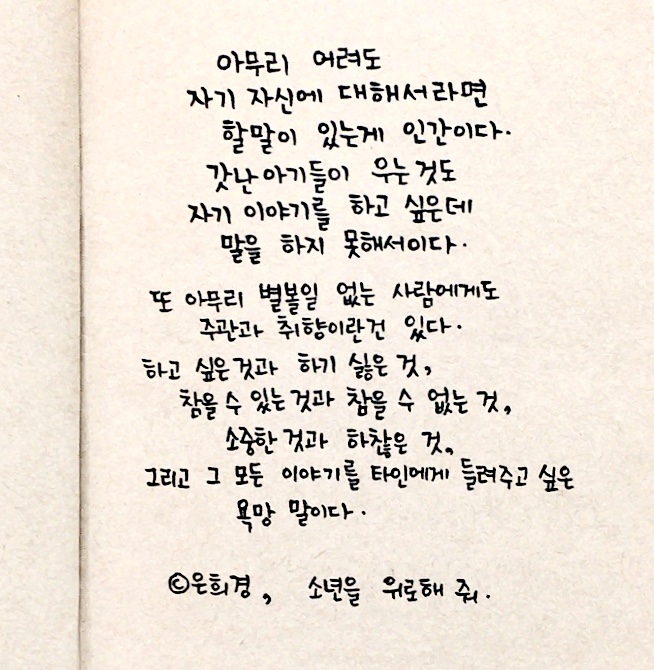 아무리 어려도
자기 자신에 대해서라면
할말이 있는게 인간이다.
갓난아기들이 우는것도
자기 이야기를 하고 싶은데
말을 하지 못해서이다.
또 아무리 별볼일 없는 사람에게도
주관과 취향이란건 있다.
하고 싶은것과 하기 싫은 것,
참을 수 있는것과 참을 수 없는 것,
소중한것과 하찮은 것,
그리고 그 모든 이야기를 타인에게 들려주고 싶은
욕망 말이다.
©은희경, 소년을 위로해 줘.